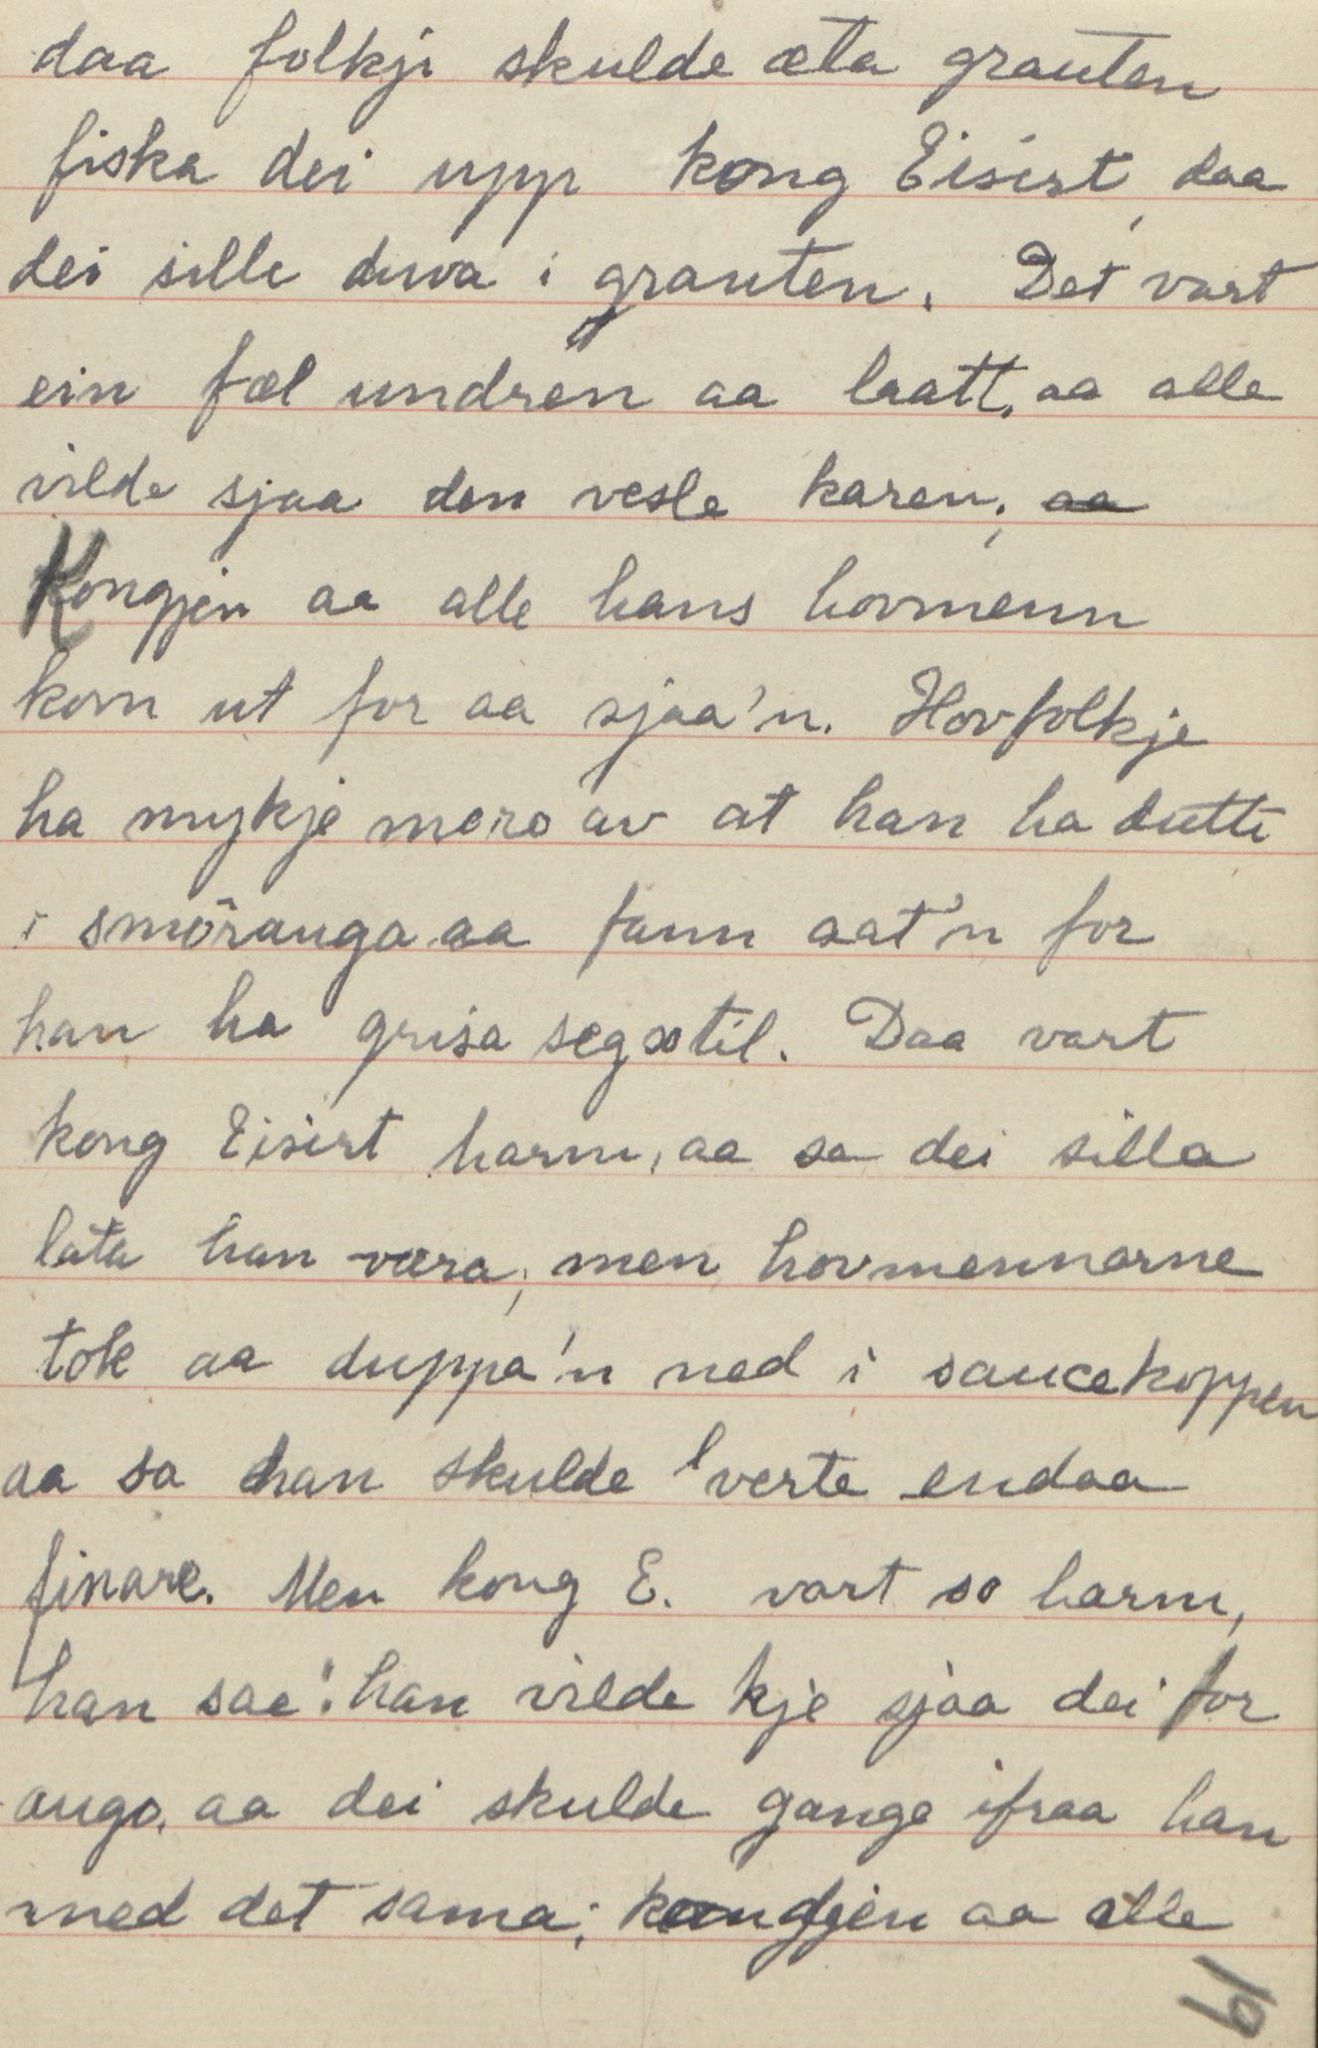 daa folkji skulde æta grauten
fiska dei upp kong Eisirt, daa
dei sille duva i grauten. Det vart
ein fæl undren aa laatt, aa alle
vilde sjaa den vesle karen; aa
Kongjen aa alle hans hovmenn
kom ut for aa sjaa'n. Hovfolkje
ha mykje moro av at han ha dutte
i smörauga aa funn aat'n for
han ha grisa seg til. Daa vart
kong Eisirt harm, aa sa dei silla
lata han væra, men hovmennarne
tok aa duppa'n ned i saucekoppen
aa sa han skulde verte endaa
finare. Men kong E. vart so harm,
han sae: han vilde kje sjaa dei for
augo, aa dei skulde gange ifraa han
med det sama; kongjen aa alle
19